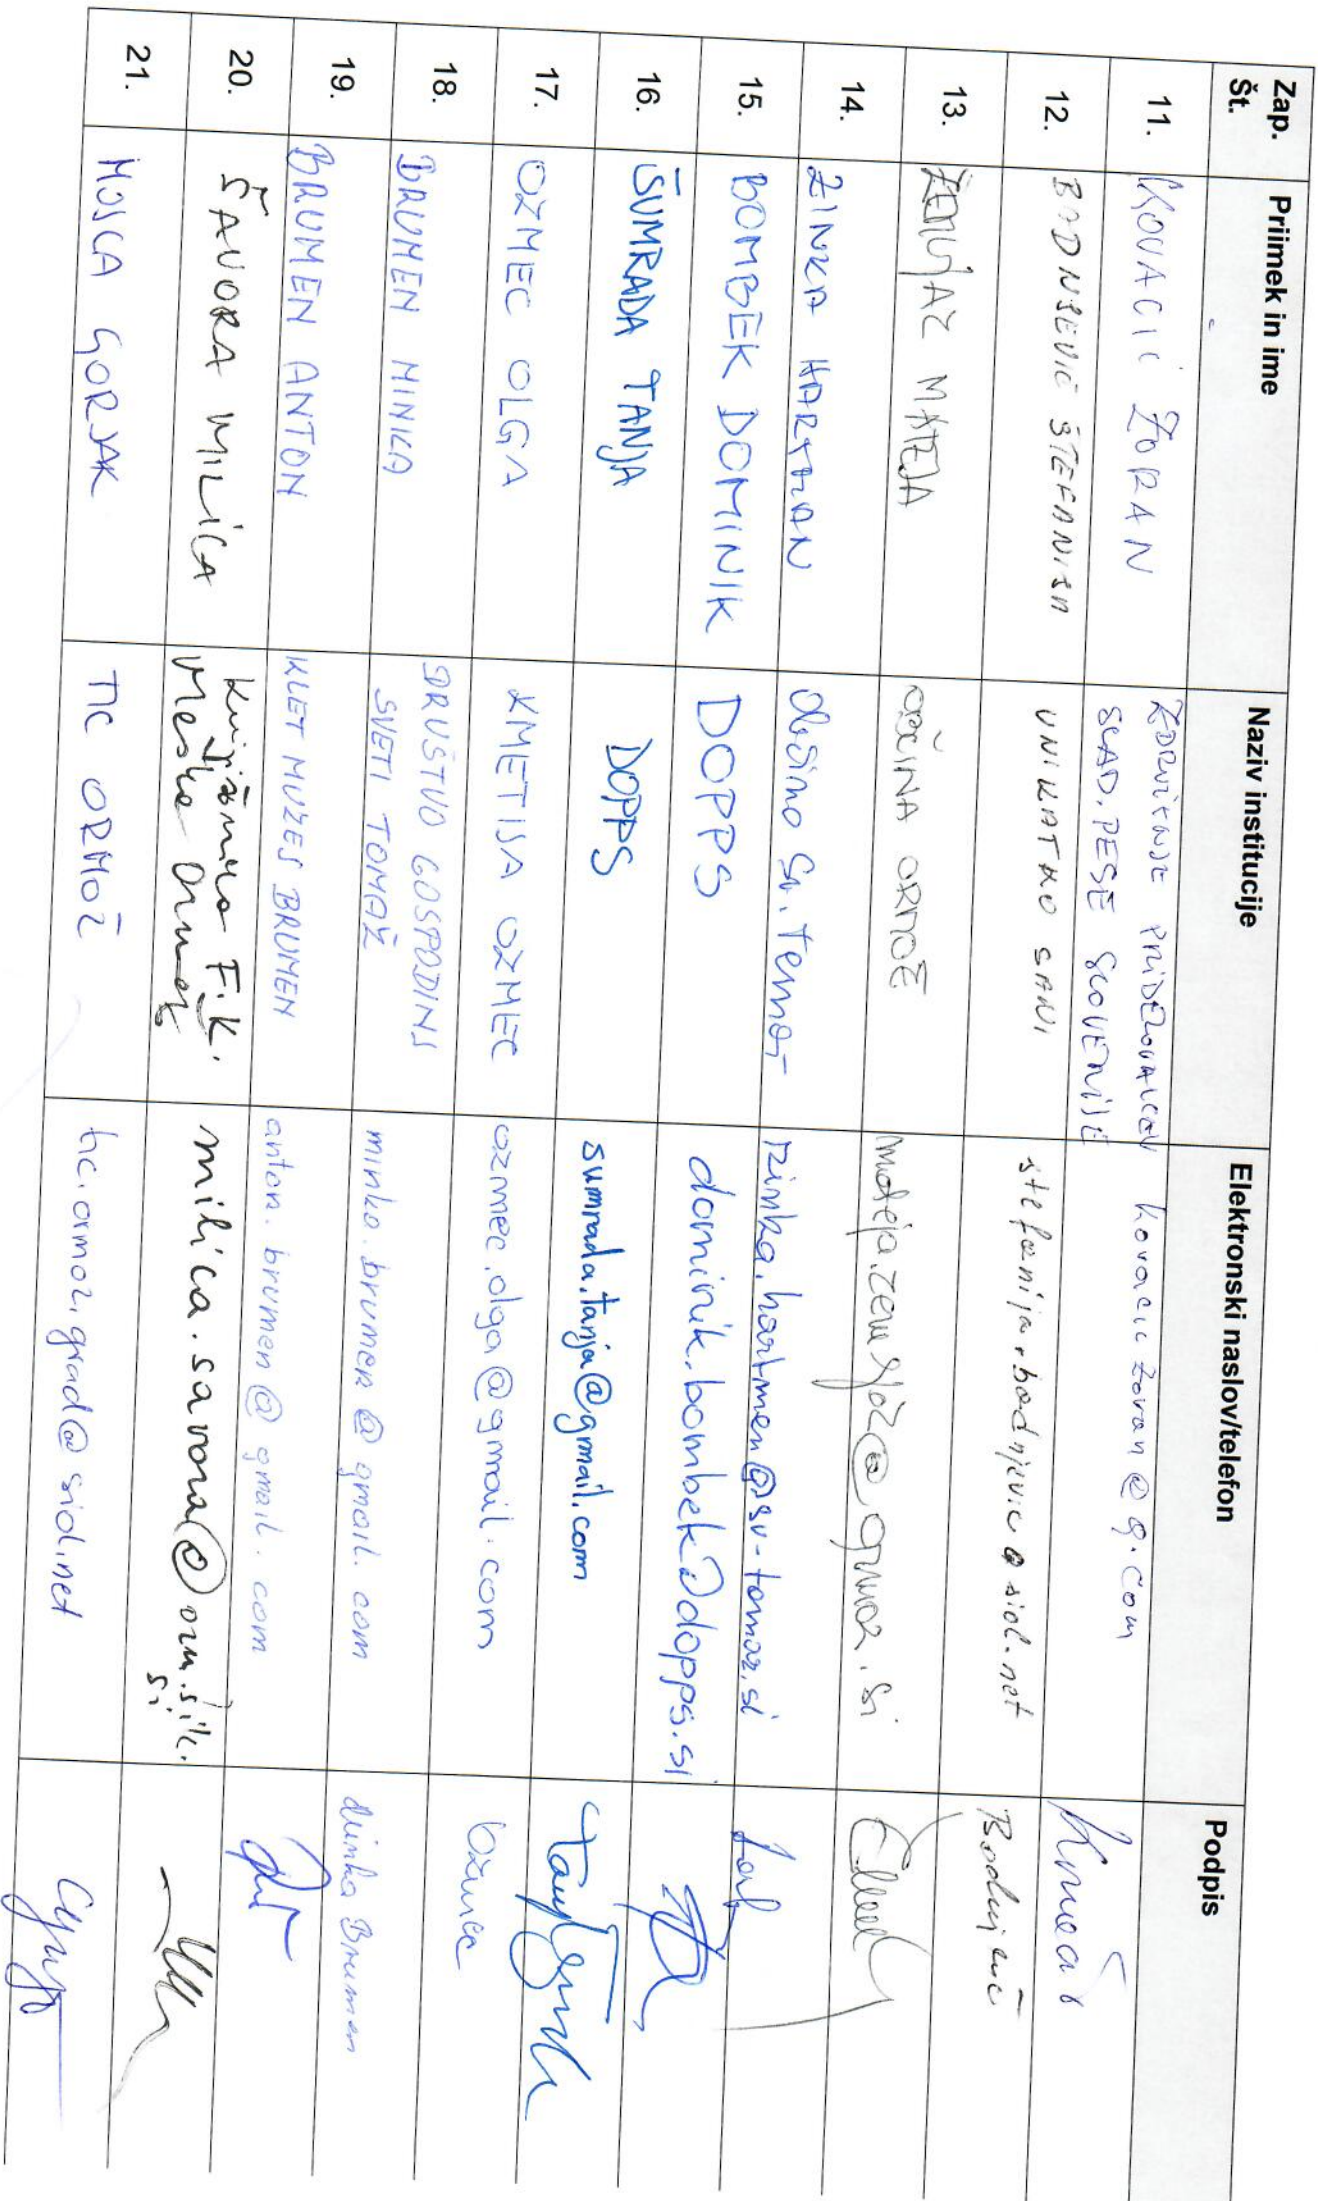 Zap. Št. Priimek in ime Naziv institucije Elektronski naslov/telefon Podpis
11. KOVAČIČ ZORAN ZDRUŽENJE PRIDELOVALCEV SLAD. PESE SLOVENIJE kovacic zoran @ g.com
12. BODNJEVIČ ŠTEFANIJA UNIKATNO SANI stefanija.bodnjevic@siol.net Bodnjevič
13. ŽEMLJIČ MATEJA OBČINA ORMOŽ
14. ZINKA HARTMAN Občina Sv. Tomaž zinka.hartman@sv-tomaz.si
15. BOMBEK DOMINIK DOPPS dominik.bombek@dopps.si
16. ŠUMRADA TANJA DOPPS sumrada.tanja@gmail.com
17. OZMEC OLGA KMETIJA OZMEC ozmec.olga@gmail.com Ozmec
18. BRUMEN MINKA DRUŠTVO GOSPODINJ SVETI TOMAŽ minka.brumen@gmail.com Minka Brumen
19. BRUMEN ANTON KLET MUZEJ BRUMEN anton.brumen@gmail.com
20. ŠAVORA MILICA Knjižnica F.K. Meška Ormož milica.savora@orm.sik.si
21. MOJCA GORJAK TIC ORMOŽ tic.ormoz.grad@siol.net